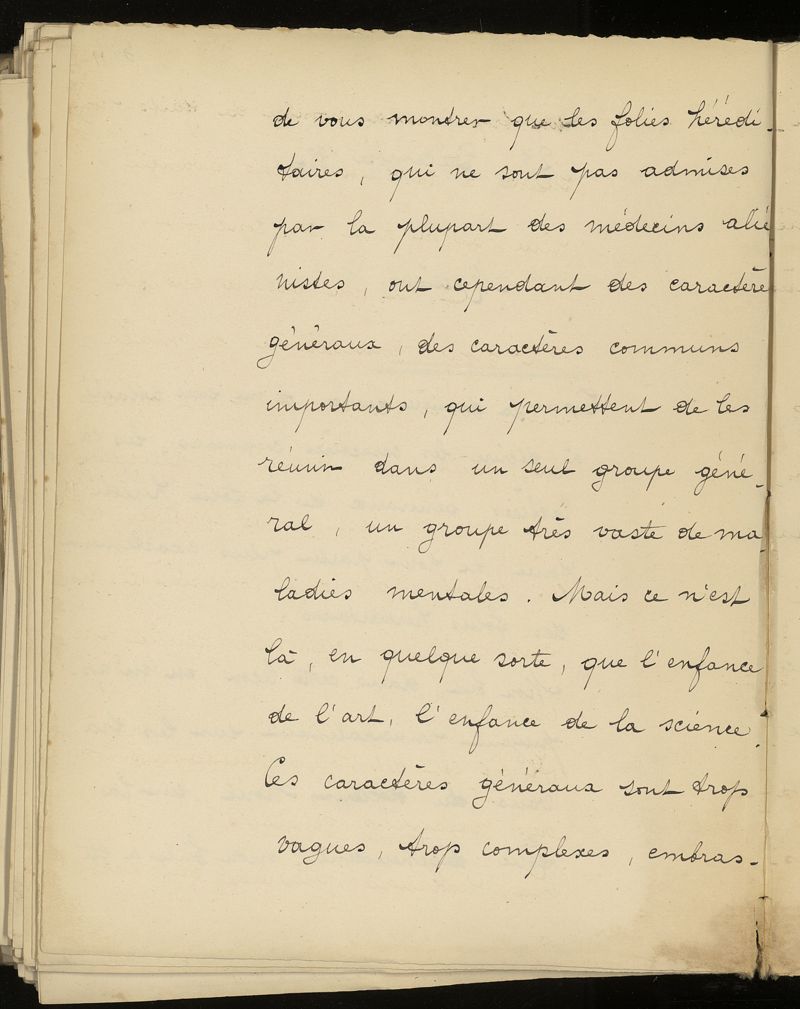 de vous montrer que les folies hérédi-
taires, qui ne sont pas admises
par la plupart des médecins alié
nistes, ont cependant des caractère
généraux, des caractères communs
importants, qui permettent de les
réunir dans un seul groupe géné-
ral, un groupe très vaste de ma
ladies mentales. Mais ce n'est
là, en quelque sorte, que l'enfance
de l'art, l'enfance de la science.
Ces caractères généraux sont trop
vagues, trop complexes, embras-